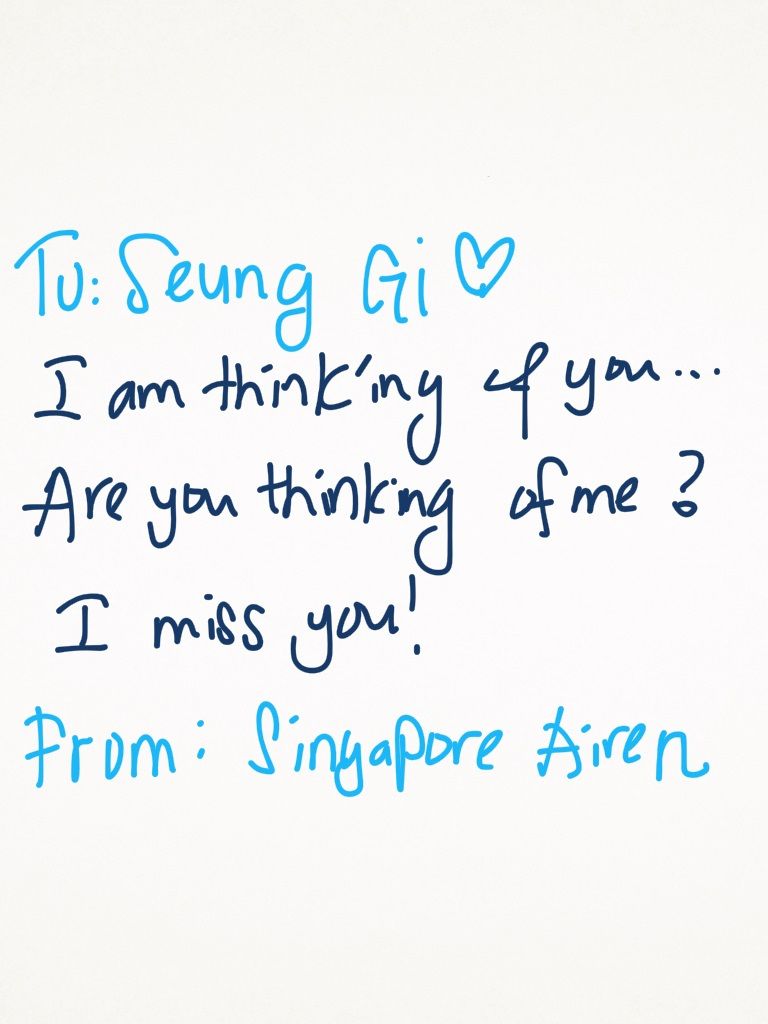 To: Seung Gi ♡
I am thinking of you...
Are you thinking of me?
I miss you!
From: Singapore Airen